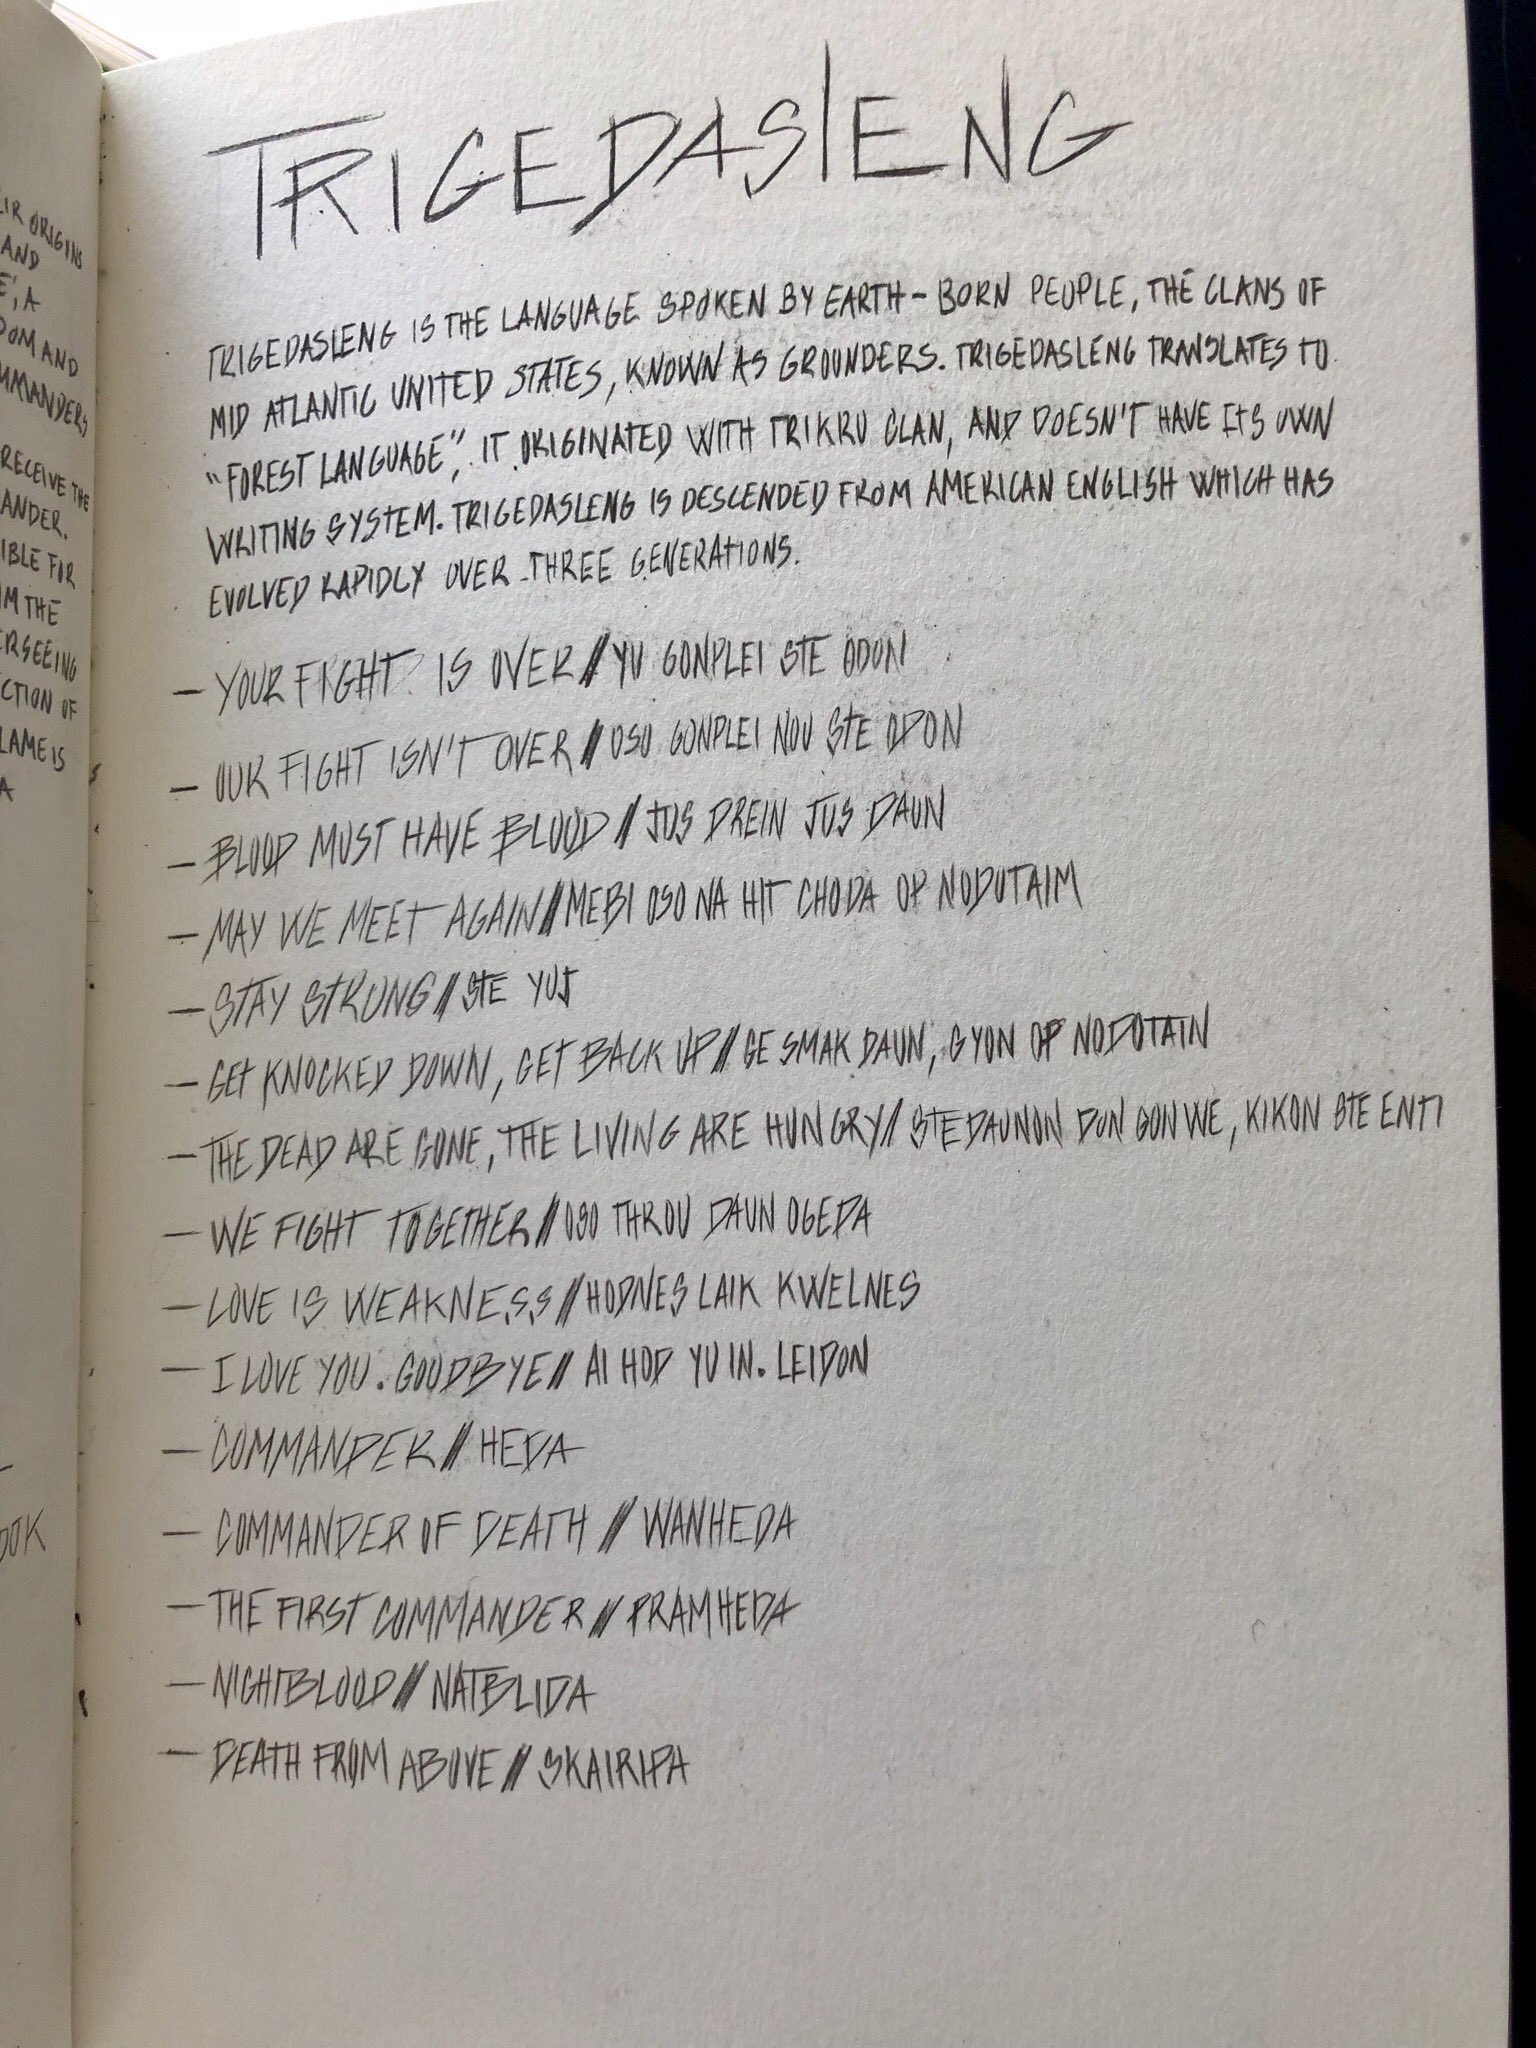 EIR ORIGINS
AND
E', A
DOM AND
MMANDERS
RECEIVE THE
ANDER.
IBLE FOR
M THE
ERSEEING
CTION OF
LAME IS
A
OOK
TRIGEDASLENG
TRIGEDASLENG IS THE LANGUAGE SPOKEN BY EARTH-BORN PEOPLE, THE CLANS OF
MID ATLANTIC UNITED STATES, KNOWN AS GROUNDERS. TRIGEDASLENG TRANSLATES TO
"FOREST LANGUAGE", IT ORIGINATED WITH TRIKRU CLAN, AND DOESN'T HAVE ITS OWN
WRITING SYSTEM. TRIGEDASLENG IS DESCENDED FROM AMERICAN ENGLISH WHICH HAS
EVOLVED RAPIDLY OVER THREE GENERATIONS.
- YOUR FIGHT IS OVER // YU GONPLEI STE ODON
- OUR FIGHT ISN'T OVER // OSO GONPLEI NOU STE ODON
- BLOOD MUST HAVE BLOOD // JUS DREIN JUS DAUN
- MAY WE MEET AGAIN // MEBI OSO NA HIT CHODA OP NODOTAIM
- STAY STRONG // STE YUJ
- GET KNOCKED DOWN, GET BACK UP // GE SMAK DAUN, GYON OP NODOTAIN
- THE DEAD ARE GONE, THE LIVING ARE HUNGRY // STEDAUNON DON GON WE, KIKON STE ENTI
- WE FIGHT TOGETHER // OSO THROU DAUN OGEDA
- LOVE IS WEAKNESS // HODNES LAIK KWELNES
- I LOVE YOU. GOODBYE // AI HOD YU IN. LEIDON
- COMMANDER // HEDA
- COMMANDER OF DEATH // WANHEDA
- THE FIRST COMMANDER // PRAMHEDA
- NIGHTBLOOD // NATBLIDA
- DEATH FROM ABOVE // SKAIRIPA